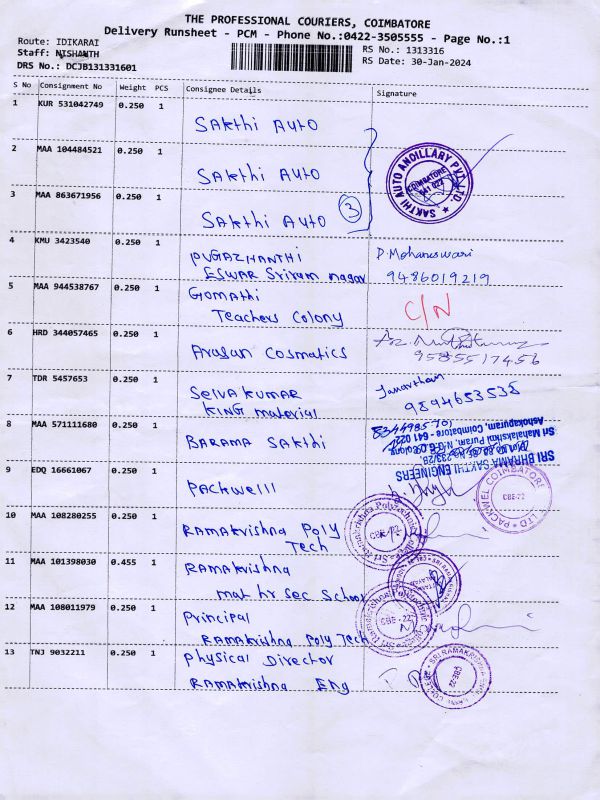 THE PROFESSIONAL COURIERS, COIMBATORE
Delivery Runsheet - PCM - Phone No.:0422-3505555 - Page No.:1
Route: IDIKARAI
Staff: NISHANTH
DRS No.: DCJB131331601
RS No.: 1313316
RS Date: 30-Jan-2024
S No Consignment No Weight PCS Consignee Details Signature
1 KUR 531042749 0.250 1 SAkthi AUTO
2 MAA 104484521 0.250 1 SAkthi AUTO
SAKTHI AUTO ANCILLARY PVT. LTD.
COIMBATORE
641 027
3 MAA 863671956 0.250 1 SAkthi AUTO 3
4 KMU 3423540 0.250 1 PUGAZHANTHI P. Mohaneswari
ESWAR Sriram nagar 9486019219
5 MAA 944538767 0.250 1 Gomathi C/N
Teachers Colony
6 HRD 344057465 0.250 1 Arasan Cosmatics
9585517456
7 TDR 5457653 0.250 1 SelvA kUMAR Janarthan
KING material 9894653538
8 MAA 571111680 0.250 1 BARAMA SAkthi
SRI BHRAMA SAKTHI ENGINEERS
Sri Mahalakshmi Puram,
Ashokapuram, Coimbatore - 641 022
9 EDQ 16661067 0.250 1 PAckwelll
PACKWEL COIMBATORE
CBE-22
10 MAA 108280255 0.250 1 RAMAkrishna Poly
Tech
CBE-22
11 MAA 101398030 0.455 1 RAMAkrishna
mat hr sec School
12 MAA 108011979 0.250 1 Principal
RAMAkrishna Poly Tech
CBE-22
13 TNJ 9032211 0.250 1 Physical Director
RAMAkrishna Eng
CBE-22